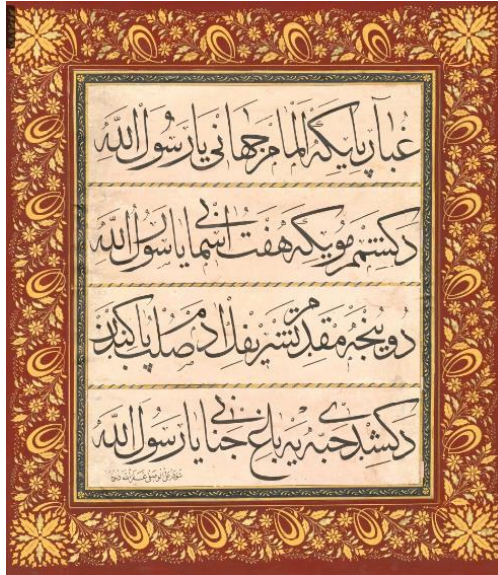 غبار پایكه آلمام جهانی یا رسول الله
دكشمم مویكه هفت آسمانی یا رسول الله
دوینجه مقدم تشریفك ادم صلب پاكندن
دكشدی حبه یه باغ جنانی یا رسول الله